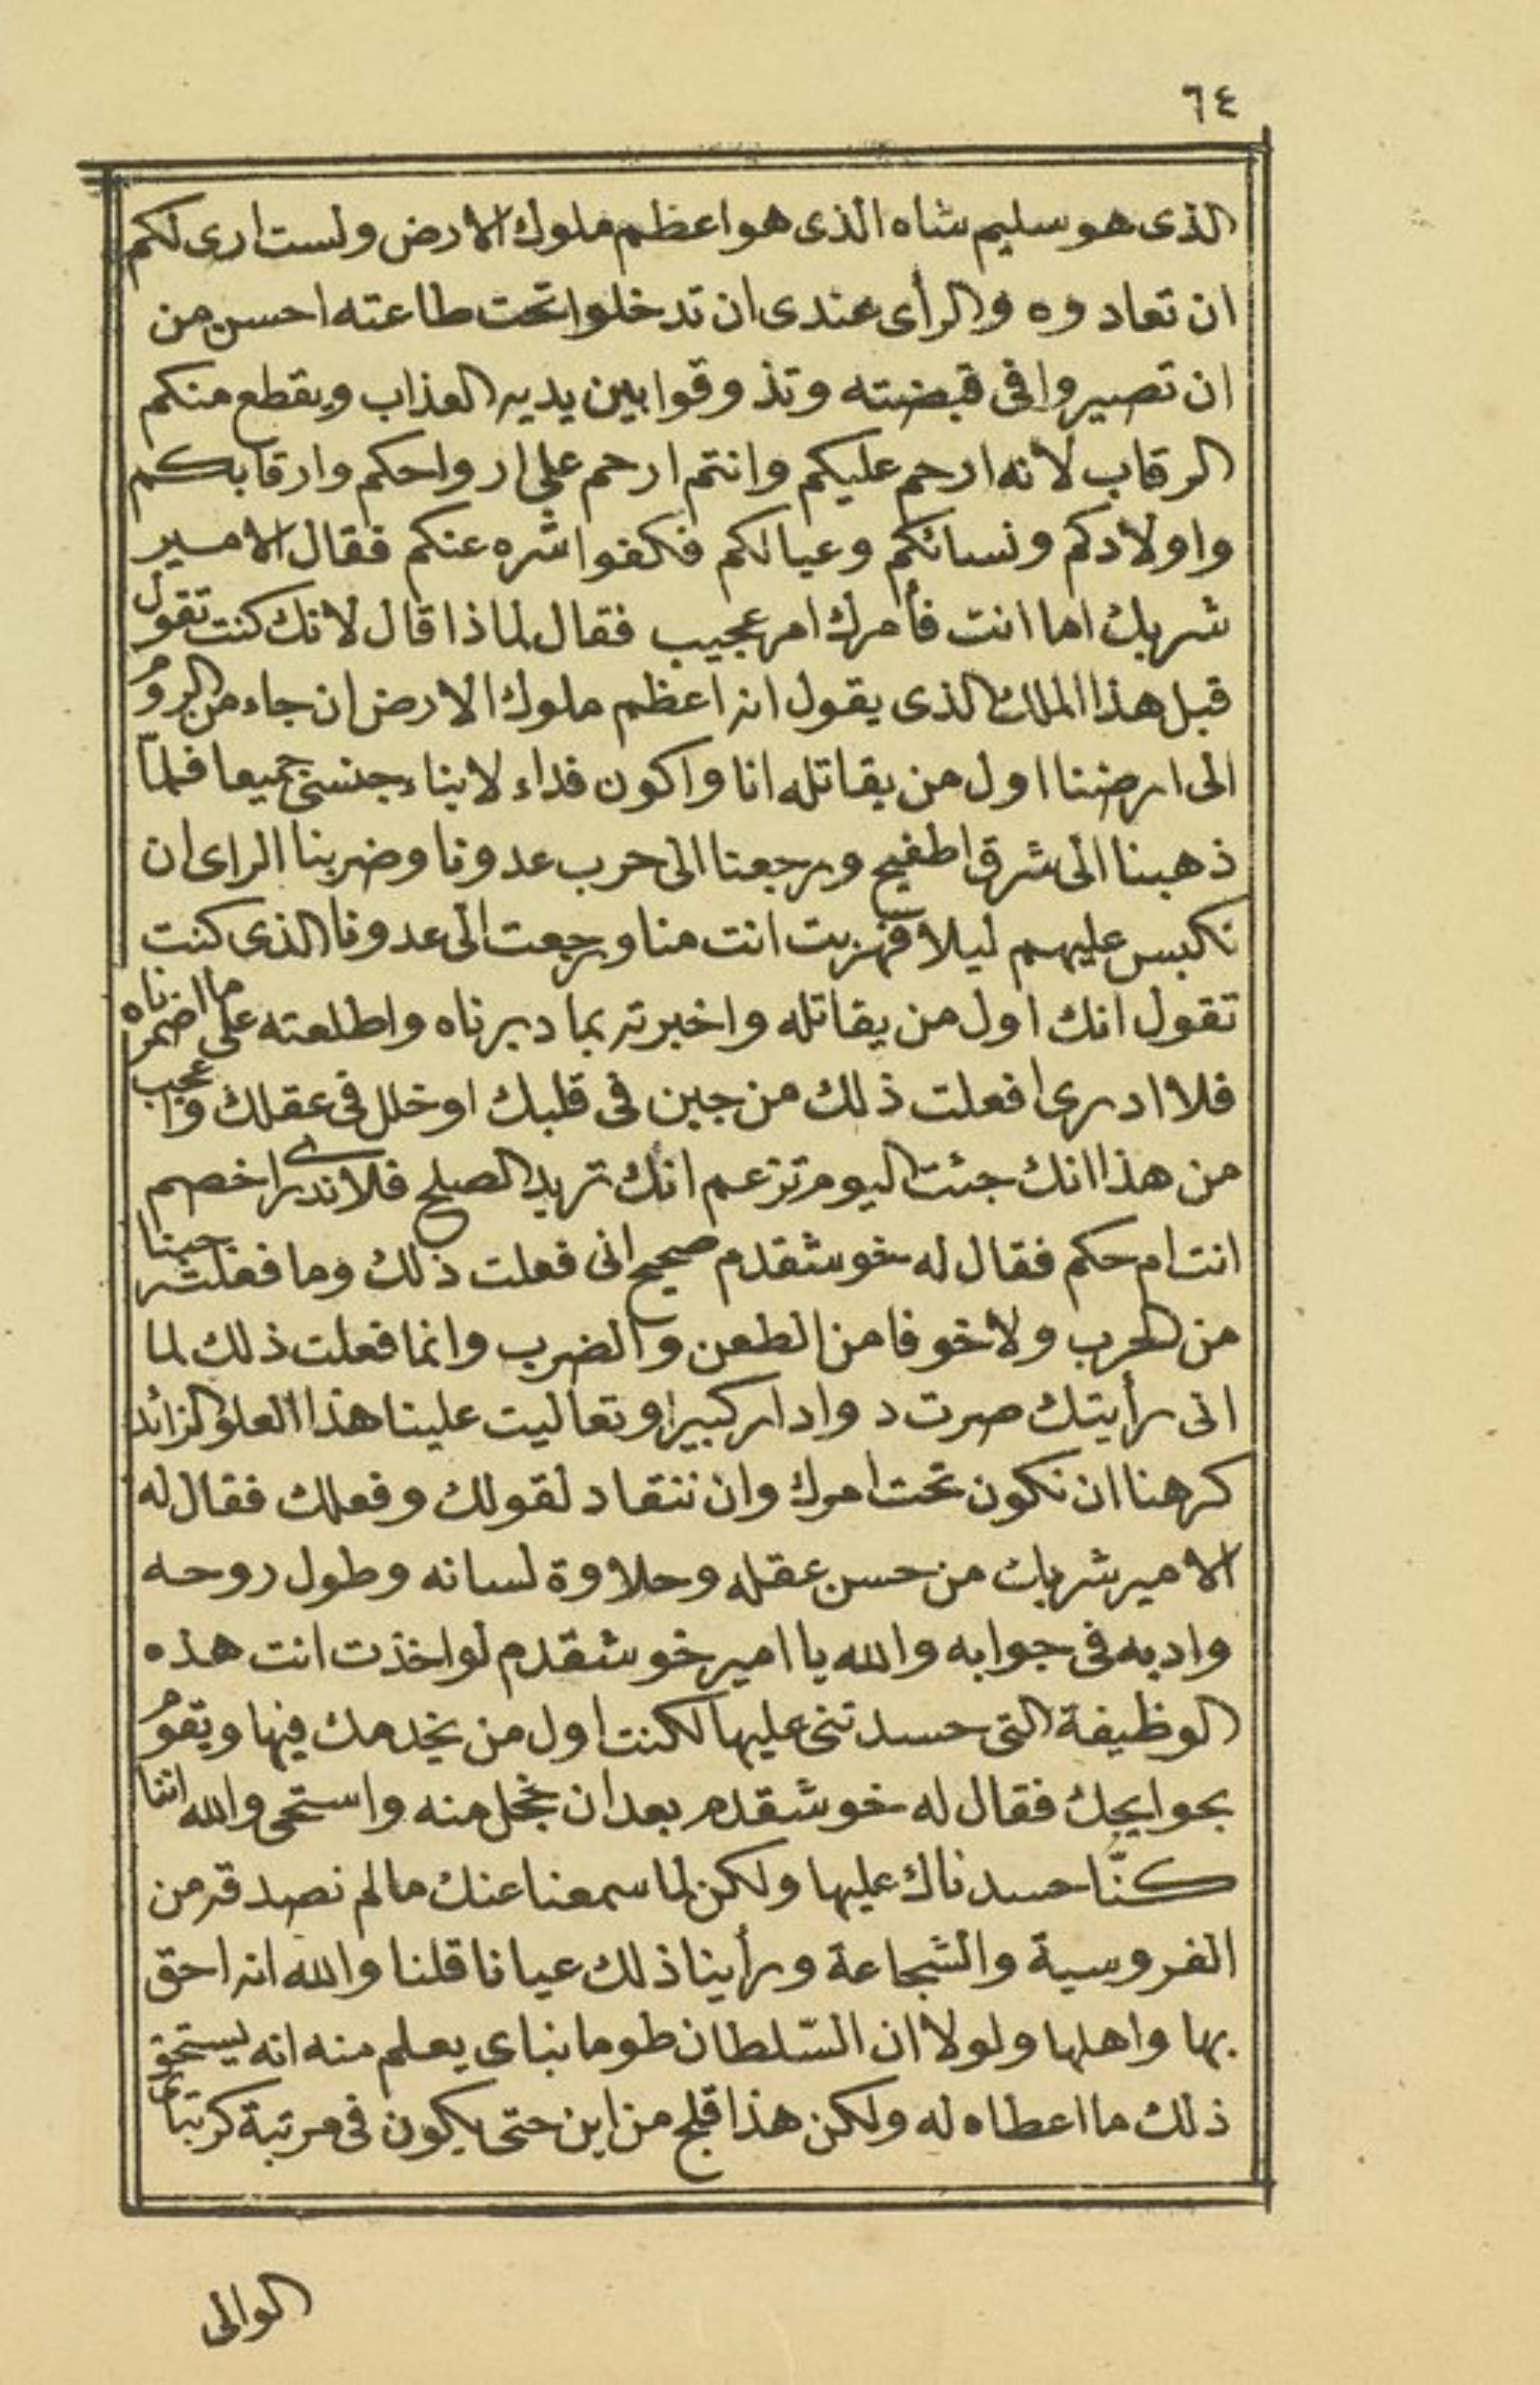 ٦٤
الذى هو سليم شاه الذى هو اعظم ملوك الارض ولست ارى لكم
ان تعادوه والرأى عندى ان تدخلوا تحت طاعته احسن من
ان تصيروا فى قبضته وتذوقوا بين يديه العذاب ويقطع منكم
الرقاب لانه ارحم عليكم وانتم ارحم على ارواحكم وارقابكم
واولادكم ونسائكم وعيالكم فكفوا شره عنكم فقال الامير
شربك اما انت فأمرك امر عجيب فقال لماذا قال لانك كنت تقول
قبل هذا الملك الذى يقول انه اعظم ملوك الارض ان جاء من الروم
الى ارضنا اول من يقاتله انا واكون فداء لابناء جنسى جميعا فلمّا
ذهبنا الى شرق اطفيح ورجعنا الى حرب عدونا وضربنا الراى ان
نكبس عليهم ليلا فهربت انت منا ورجعت الى عدونا الذى كنت
تقول انك اول من يقاتله واخبرته بما دبرناه واطلعته على ما اضمرناه
فلا ادرى افعلت ذلك من جبن فى قلبك او خلل فى عقلك واعجب
من هذا انك جئت اليوم تزعم انك تريد الصلح فلا ندرى اخصم
انت ام حكم فقال له خوشقدم صحيح انى فعلت ذلك وما فعلته جبنا
من الحرب ولا خوفا من الطعن والضرب وانما فعلت ذلك لما
انى رأيتك صرت دوادار كبيرا وتعاليت علينا هذا العلو الزائد
كرهنا ان نكون تحت امرك وان ننقاد لقولك وفعلك فقال له
الامير شربك من حسن عقله وحلاوة لسانه وطول روحه
وادبه فى جوابه والله يا امير خوشقدم لو اخذت انت هذه
الوظيفة التى حسدتنى عليها لكنت اول من يخدمك فيها ويقوم
بحوايجك فقال له خوشقدم بعد ان خجل منه واستحى والله اننا
كنّا حسدناك عليها ولكن لما سمعنا عنك ما لم نصدقه من
الفروسية والشجاعة ورأينا ذلك عيانا قلنا والله انه احق
بها واهلها ولولا ان السّلطان طومانباى يعلم منه انه يستحق
ذلك ما اعطاه له ولكن هذا قلج من اين حتى يكون فى مرتبة كرتباى
الوالى